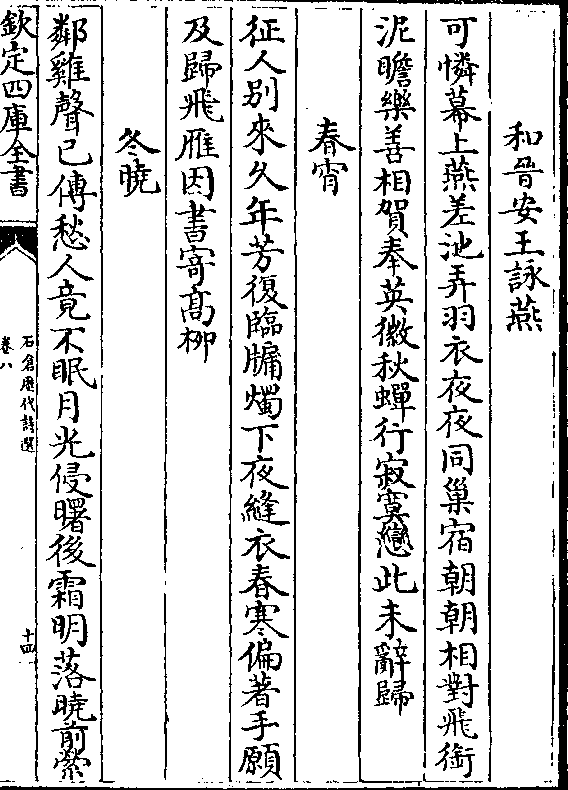 和晉安王詠燕
可憐幕上燕差池弄羽衣夜夜同巢宿朝朝相對飛銜
泥瞻樂善相賀奉英徽秋蟬行寂寞戀此未辭歸
春宵
征人别來久年芳復臨牗燭下夜縫衣春寒偏著手願
及歸飛雁因書寄髙栁
冬曉
鄰雞聲已傳愁人竟不眠月光侵曙後霜明落曉前縈
欽定四庫全書
石倉歴代詩選
卷八
十四